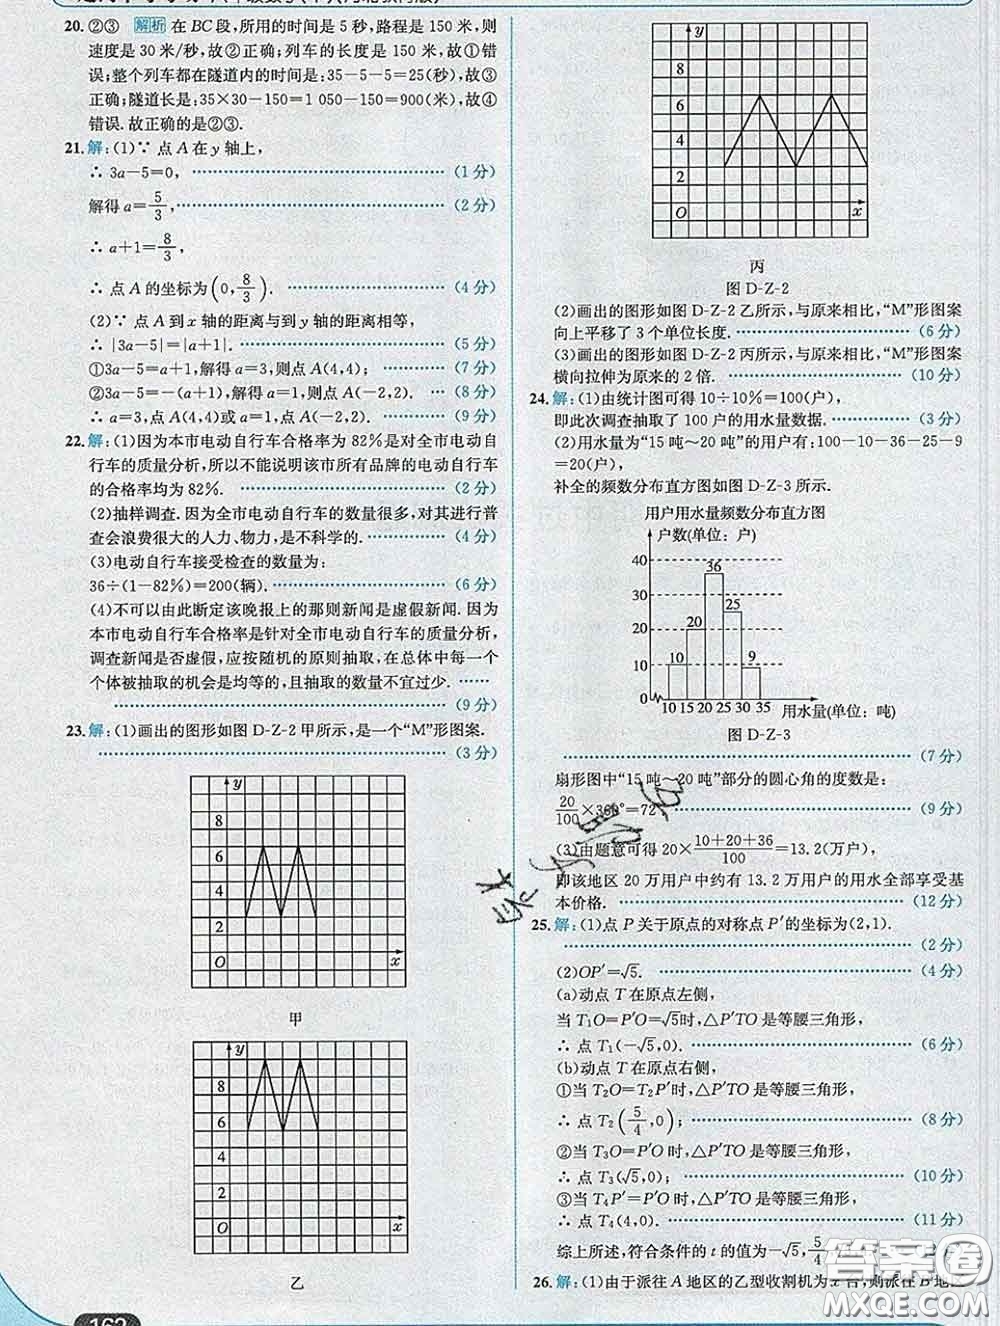 20. ②③ 解析 在BC段,所用的时间是5秒,路程是150米,则
速度是30米/秒,故②正确;列车的长度是150米,故①错
误;整个列车都在隧道内的时间是:35-5-5=25(秒),故③
正确;隧道长是:35×30-150=1 050-150=900(米),故④
错误.故正确的是②③.
21. 解:(1)∵ 点A在y轴上,
∴ 3a-5=0, (1分)
解得a=5/3, (2分)
∴ a+1=8/3,
∴ 点A的坐标为(0,8/3). (4分)
(2)∵ 点A到x轴的距离与到y轴的距离相等,
∴ |3a-5|=|a+1|. (5分)
①3a-5=a+1,解得a=3,则点A(4,4); (7分)
②3a-5=-(a+1),解得a=1,则点A(-2,2). (8分)
∴ a=3,点A(4,4)或a=1,点A(-2,2). (9分)
22. 解:(1)因为本市电动自行车合格率为82%是对全市电动自
行车的质量分析,所以不能说明该市所有品牌的电动自行车
的合格率均为82%. (2分)
(2)抽样调查.因为全市电动自行车的数量很多,对其进行普
查会浪费很大的人力、物力,是不科学的. (4分)
(3)电动自行车接受检查的数量为:
36÷(1-82%)=200(辆). (6分)
(4)不可以由此断定该晚报上的那则新闻是虚假新闻.因为
本市电动自行车合格率是针对全市电动自行车的质量分析,
调查新闻是否虚假,应按随机的原则抽取,在总体中每一个
个体被抽取的机会是均等的,且抽取的数量不宜过少. ……
(9分)
23. 解:(1)画出的图形如图D-Z-2甲所示,是一个“M”形图案.
(3分)
y
8
6
4
2
O
x
甲
y
8
6
4
2
O
x
乙
162
y
8
6
4
2
O
x
丙
图 D-Z-2
(2)画出的图形如图D-Z-2乙所示,与原来相比,“M”形图案
向上平移了3个单位长度. (6分)
(3)画出的图形如图D-Z-2丙所示,与原来相比,“M”形图案
横向拉伸为原来的2倍. (10分)
24. 解:(1)由统计图可得10÷10%=100(户),
即此次调查抽取了100户的用水量数据. (3分)
(2)用水量为“15吨~20吨”的用户有:100-10-36-25-9
=20(户),
补全的频数分布直方图如图D-Z-3所示.
用户用水量频数分布直方图
户数(单位:户)
40
30
20
10
0
10
20
36
25
9
10 15 20 25 30 35 用水量(单位:吨)
图 D-Z-3
(7分)
扇形图中“15吨~20吨”部分的圆心角的度数是:
20/100×360°=72°. (9分)
(3)由题意可得20×(10+20+36)/100=13.2(万户),
即该地区20万用户中约有13.2万用户的用水全部享受基
本价格. (12分)
25. 解:(1)点P关于原点的对称点P′的坐标为(2,1).
(2分)
(2)OP′=√5. (4分)
(a)动点T在原点左侧,
当T₁O=P′O=√5时,△P′TO是等腰三角形,
∴ 点T₁(-√5,0). (6分)
(b)动点T在原点右侧,
①当T₂O=T₂P′时,△P′TO是等腰三角形,
∴ 点T₂(5/4,0); (8分)
②当T₃O=P′O时,△P′TO是等腰三角形,
∴ 点T₃(√5,0); (10分)
③当T₄P′=P′O时,△P′TO是等腰三角形,
∴ 点T₄(4,0). (11分)
综上所述,符合条件的t的值为-√5,5/4
26. 解:(1)由于派往A地区的乙型收割机为x台,则派往B地区
答案圈
MXQE.COM